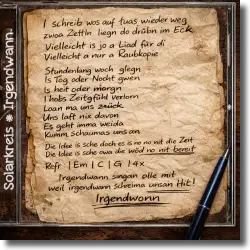 Solarkreis * Irgendwann.
I schreib wos auf tuas wieder weg
zwoa Zettln liegn do drübn im Eck
Vielleicht is jo a Liad für di
Vielleicht a nur a Raubkopie
Stundenlang woch glegn
Is Tog oder Nocht gwen
Is heit oder morgn
I hobs Zeitgfühl verlorn
Loan ma uns zruck
Uns laft nix davon
Es geht imma weida
Kumm schaumas uns an
Die Idee is sche doch es is no no nit die Zeit
Die Idee is sche owa die wöd no nit bereit
Refr | Em | C | G | 4x
Irgendwann singan olle mit
weil irgendwann schreima unsan Hit!
Irgendwonn